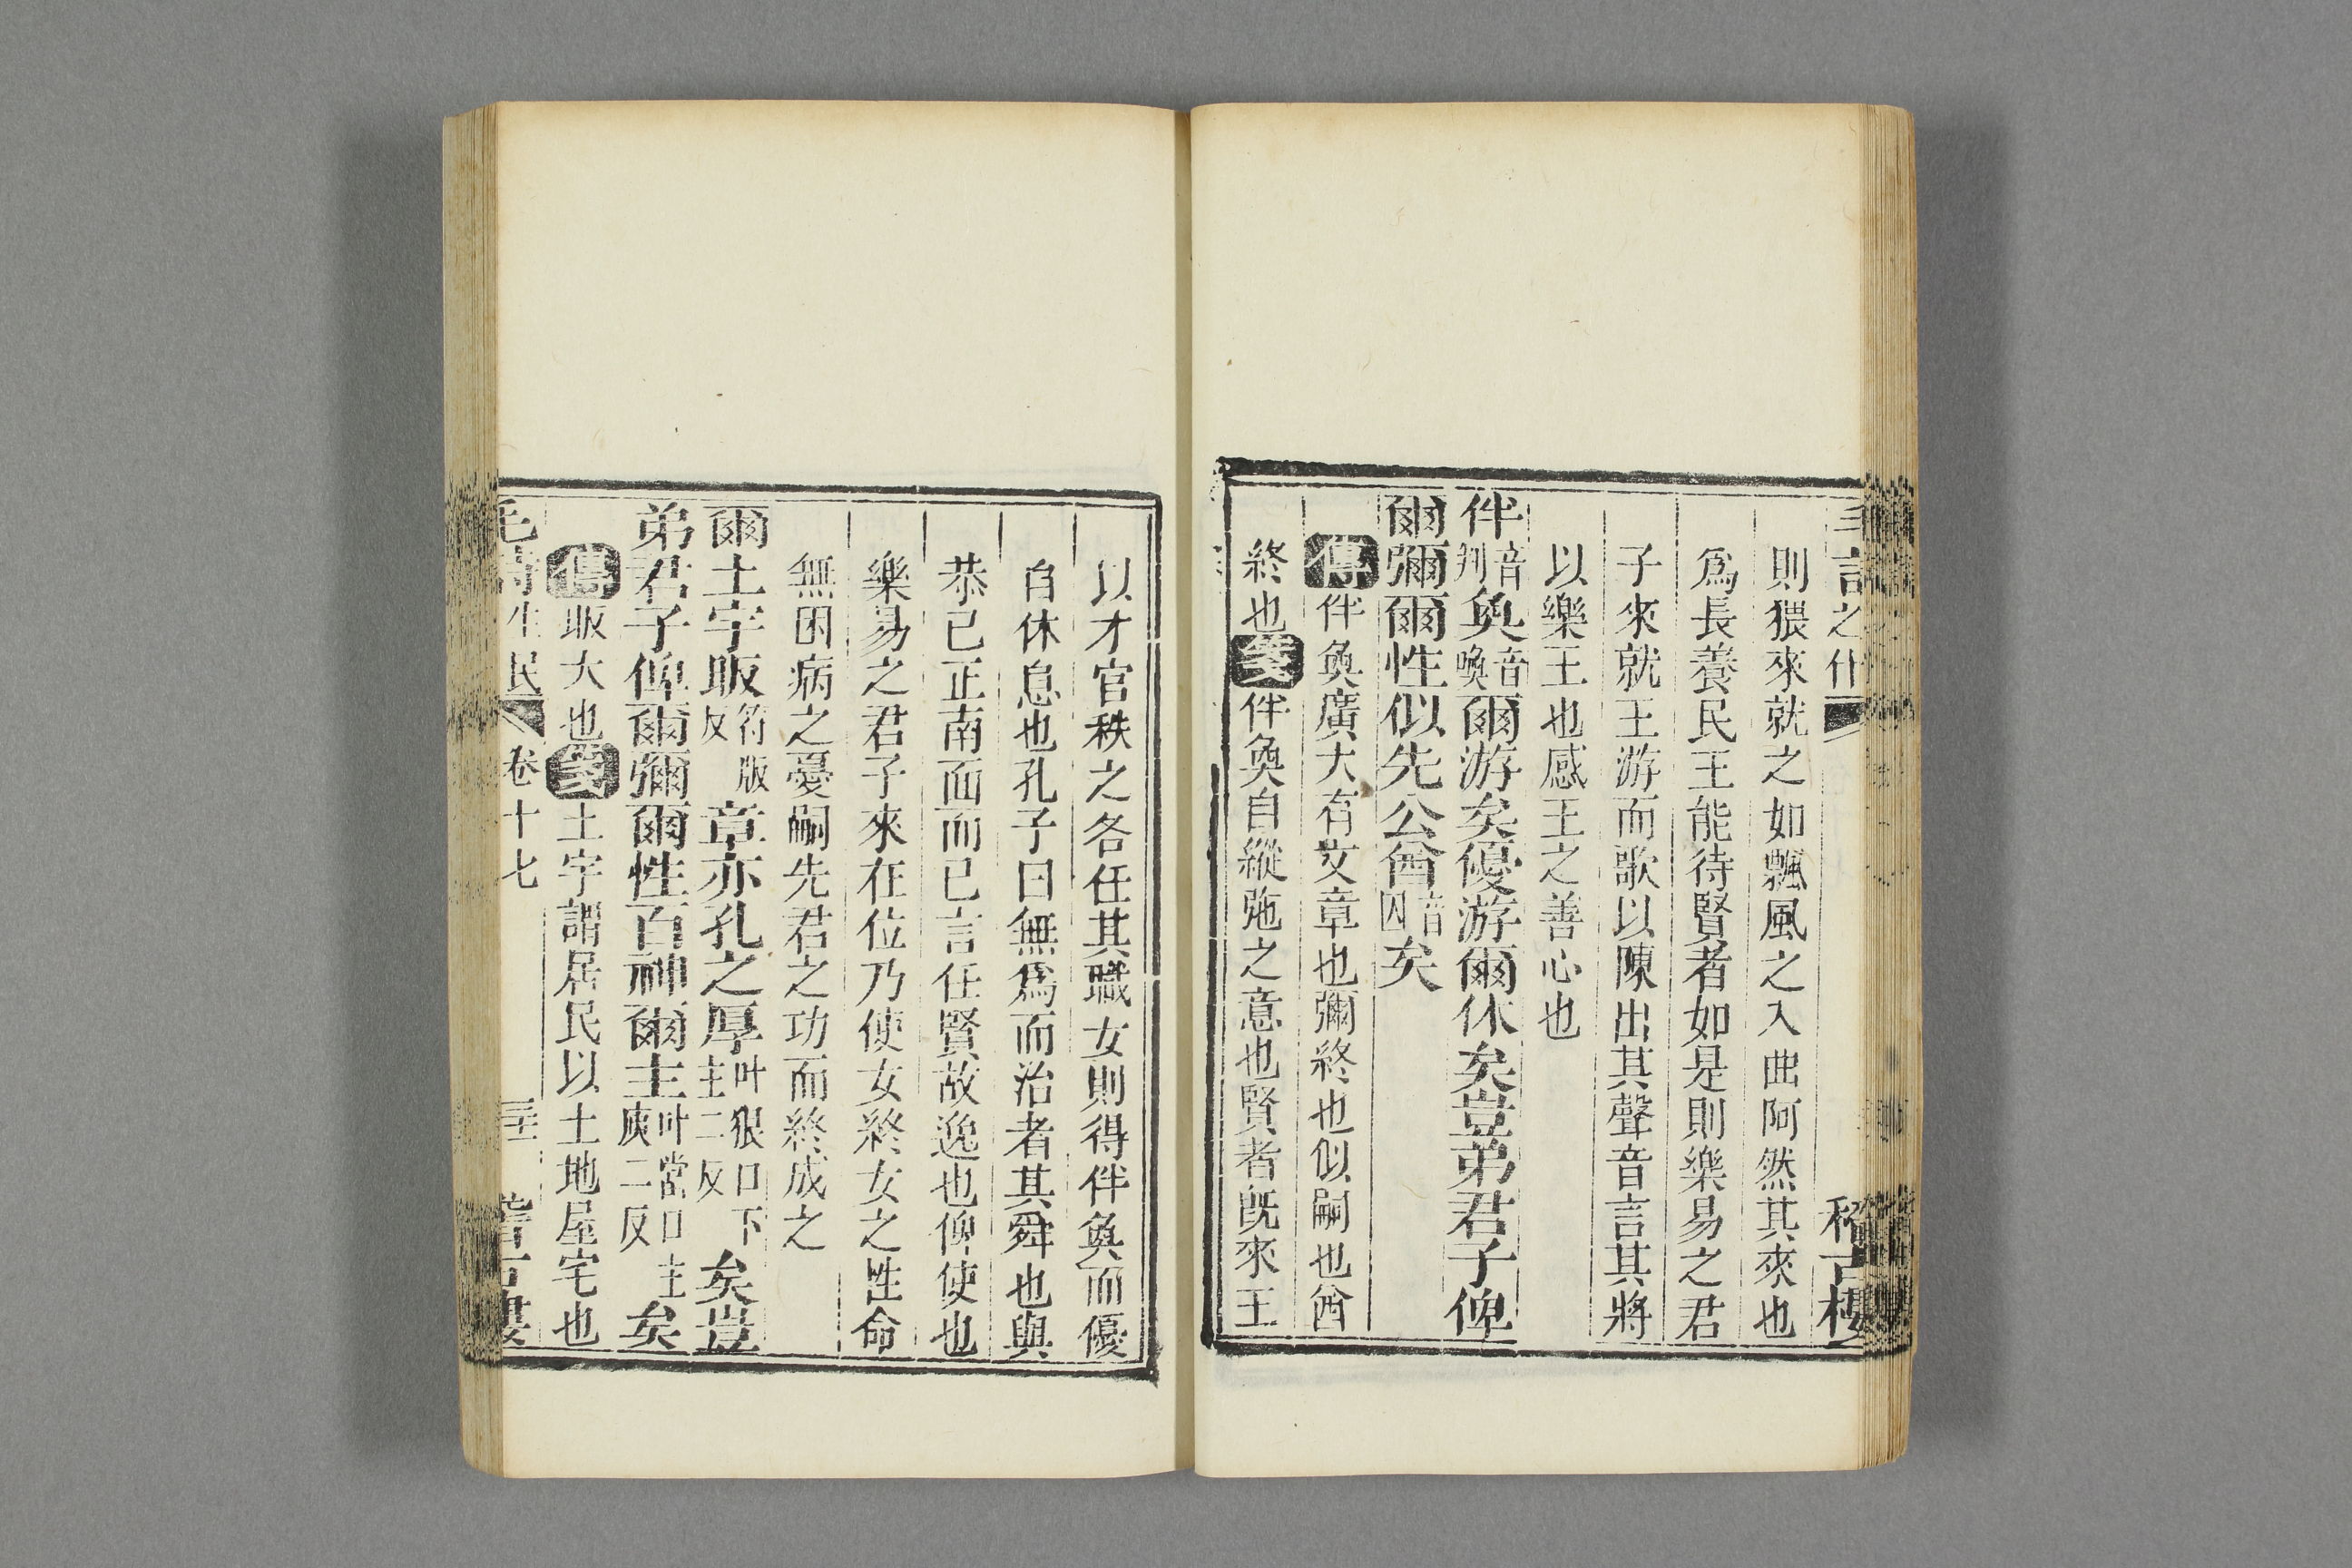 之什
則猥來就之如飄風之入曲阿然其來也
爲長養民王能待賢者如是則樂易之君
子來就王游而歌以陳出其聲音言其將
以樂王也感王之善心也
伴音判奐音喚爾游矣優游爾休矣豈弟君子俾
爾彌爾性似先公酋音囚矣
傳伴奐廣大有文章也彌終也似嗣也酋
終也箋伴奐自縱弛之意也賢者既來王
以才官秩之各任其職女則得伴奐而優
自休息也孔子曰無爲而治者其舜也與
恭己正南面而已言任賢故逸也俾使也
樂易之君子來在位乃使女終女之性命
無困病之憂嗣先君之功而終成之
爾土宇昄符版反章亦孔之厚叶狠口下主二反矣豈
弟君子俾爾彌爾性百神爾主叶當口主庾二反矣
傳昄大也箋土宇謂居民以土地屋宅也
毛詩生民 卷十七